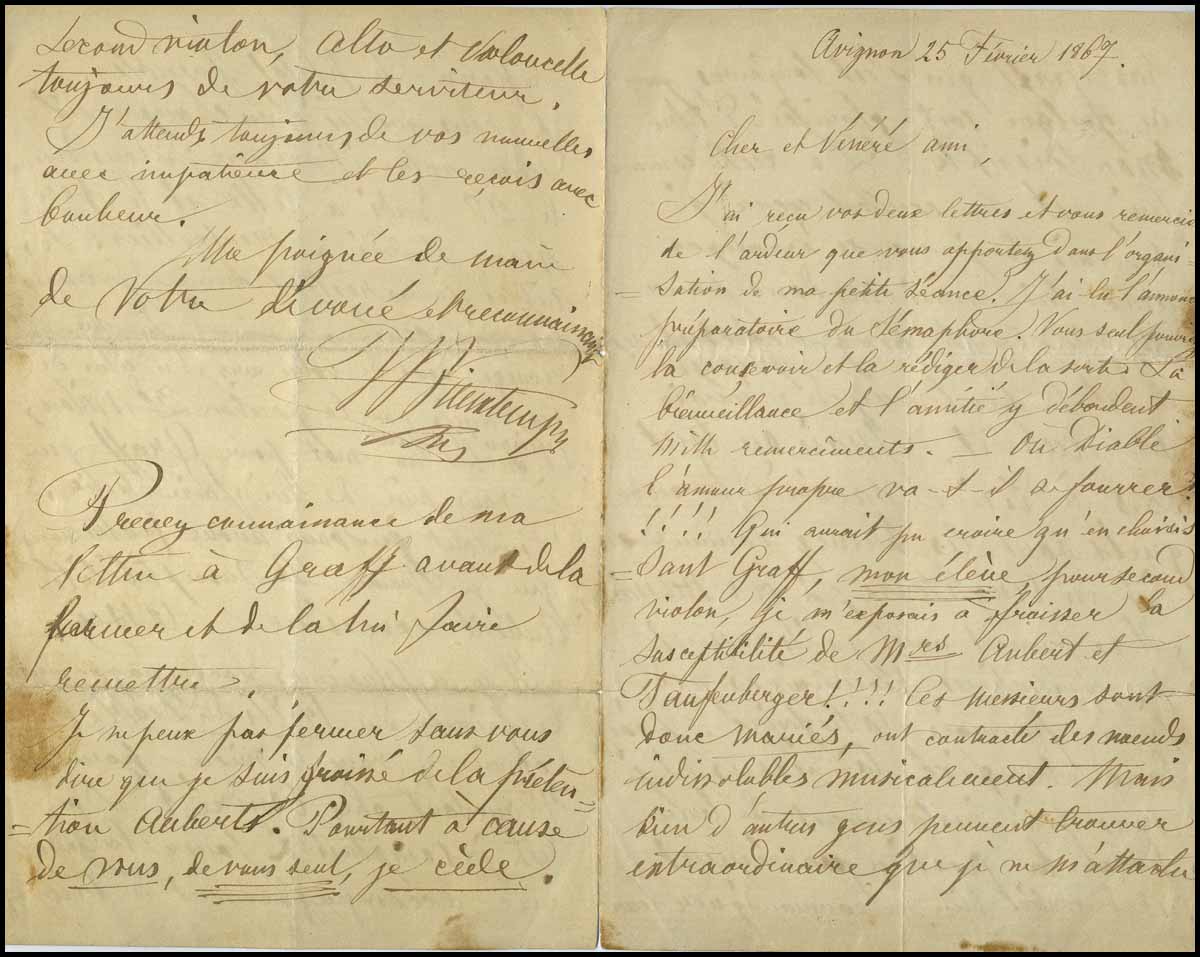 Avignon 25 Février 1867.
Cher et Vénéré ami,
J'ai reçu vos deux lettres et vous remercie
de l'ardeur que vous apportez dans l'organi-
=sation de ma petite séance. J'ai lu l'annonce
préparatoire du Sémaphore. Vous seul pouvez
la concevoir et la rédiger de la sorte. La
bienveillance et l'amitié y débordent
mille remerciments. — Où Diable
l'amour propre va-t-il se fourrer?
!!!! Qui aurait pu croire qu'en choisis
=sant Graff, mon élève, pour second
violon, je m'exposais à froisser la
susceptibilité de Mrs Aubert et
Tanfenberger!!!! Ces messieurs sont
donc mariés, ont contracté des nœuds
indissolubles musicalement. Mais
bien d'autres gens peuvent trouver
extraordinaire que je ne m'attache
second violon, Alto et Violoncelle
toujours de votre serviteur.
J'attends toujours de vos nouvelles
avec impatience et les reçois avec
bonheur.
Une poignée de main
de votre dévoué et reconnaissant
H Vieuxtemps
Prenez connaissance de ma
lettre à Graff avant de la
fermer et de la lui faire
remettre.
Je ne peux pas fermer sans vous
dire que je suis froissé de la préten=
=tion Aubert. Pourtant à cause
de vous, de vous seul, je cède.